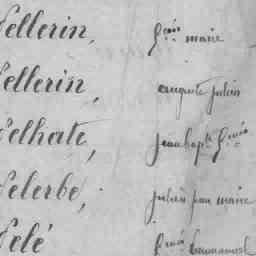 Pellerin, f.çois marie
Pellerin, auguste julien
Pelhate, jean bap.te f.çois
Pelerbe, julien jean marie
Pelé f.çois Emmanuel